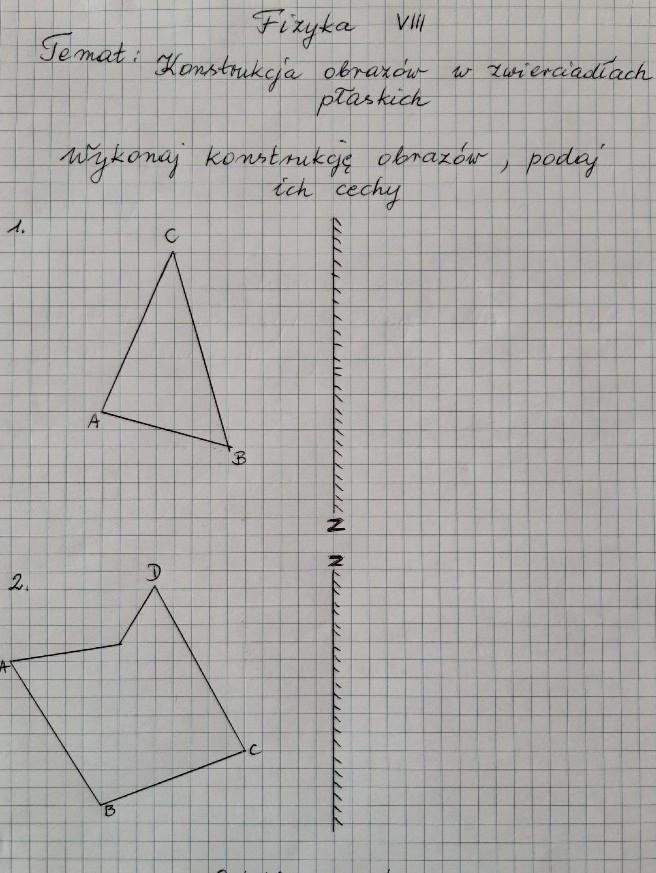 Fizyka VIII
Temat: Konstrukcja obrazów w zwierciadłach
płaskich
Wykonaj konstrukcję obrazów, podaj
ich cechy
1.
C
A
B
Z
Z
2.
D
A
C
B